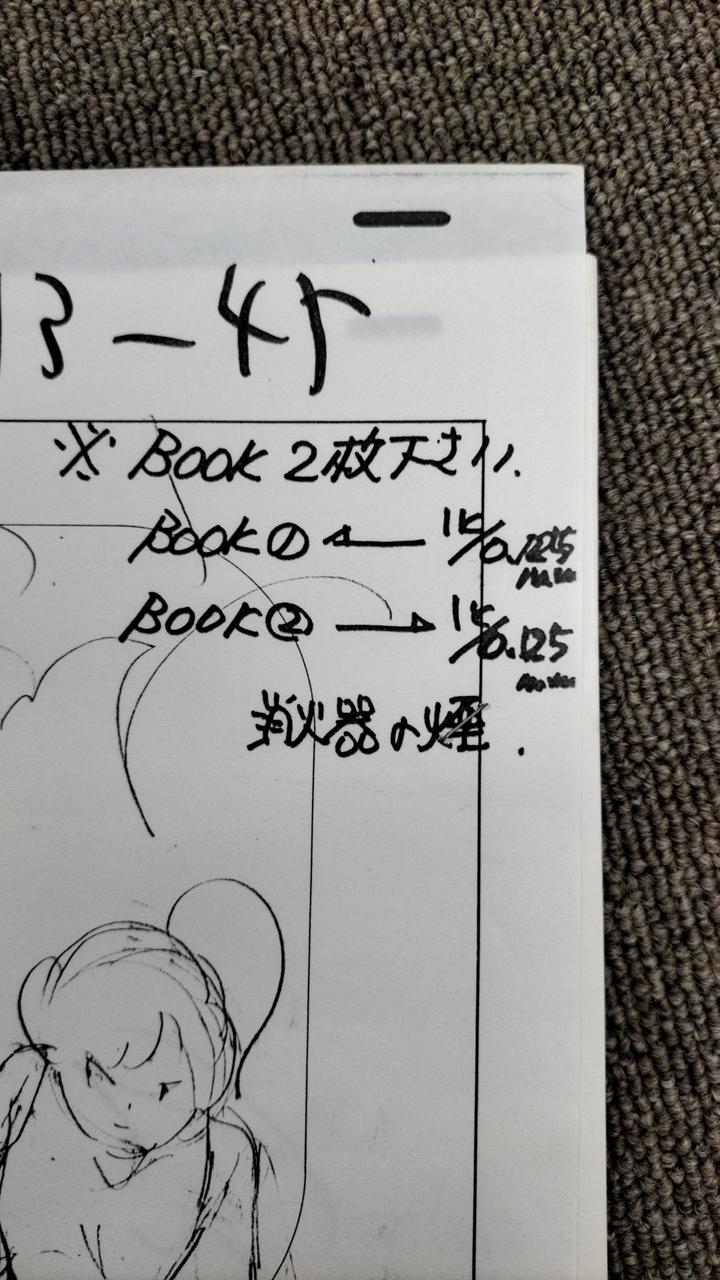 13-45
※ BOOK 2枚下さい.
BOOK① ← 1K/0.125
BOOK② → 1K/0.125
消火器の煙.